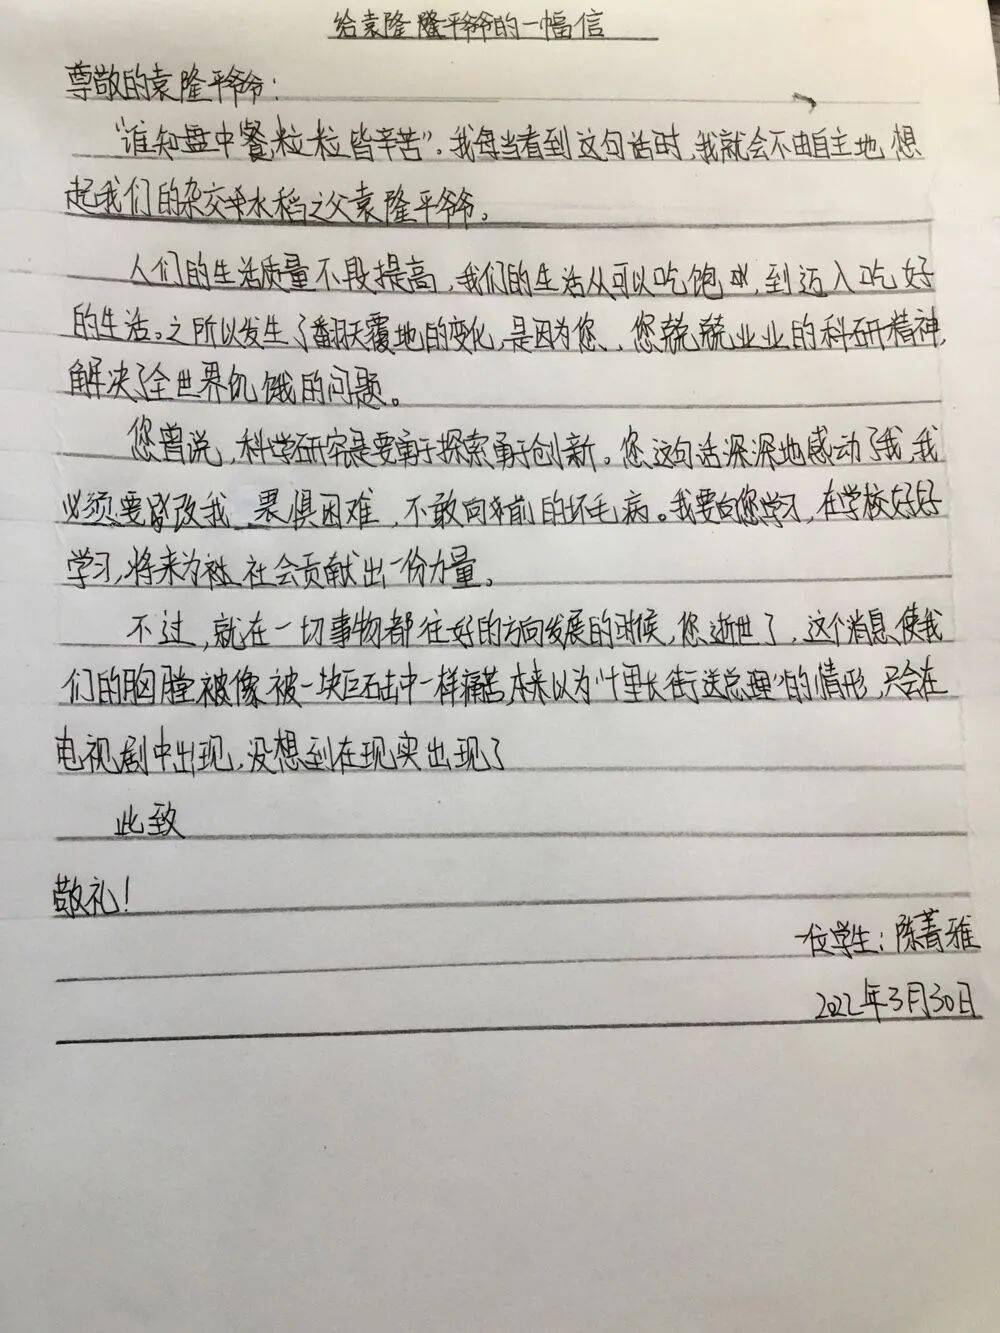 给袁隆隆平爷爷的一幅信
尊敬的袁隆平爷爷：
“谁知盘中餐,粒粒皆辛苦”。我每当看到这句话时,我就会不由自主地想
起我们的杂交水稻之父袁隆平爷爷。
人们的生活质量不段提高,我们的生活从可以吃饱,到迈入吃好
的生活。之所以发生了翻天覆地的变化,是因为您、您兢兢业业的科研精神,
解决了全世界饥饿的问题。
您曾说,科学研究是要勇于探索勇于创新。您这句话深深地感动了我,我
必须要改我畏惧困难,不敢向前的坏毛病。我要向您学习,在学校好好
学习,将来为社会贡献出一份力量。
不过,就在一切事物都往好的方向发展的时候,您逝世了,这个消息使我
们的胸膛被像被一块巨石击中一样痛苦,本来以为“十里长街送总理”的情形,只会在
电视剧中出现,没想到在现实出现了
此致
敬礼!
一位学生：陈菁雅
2022年3月30日